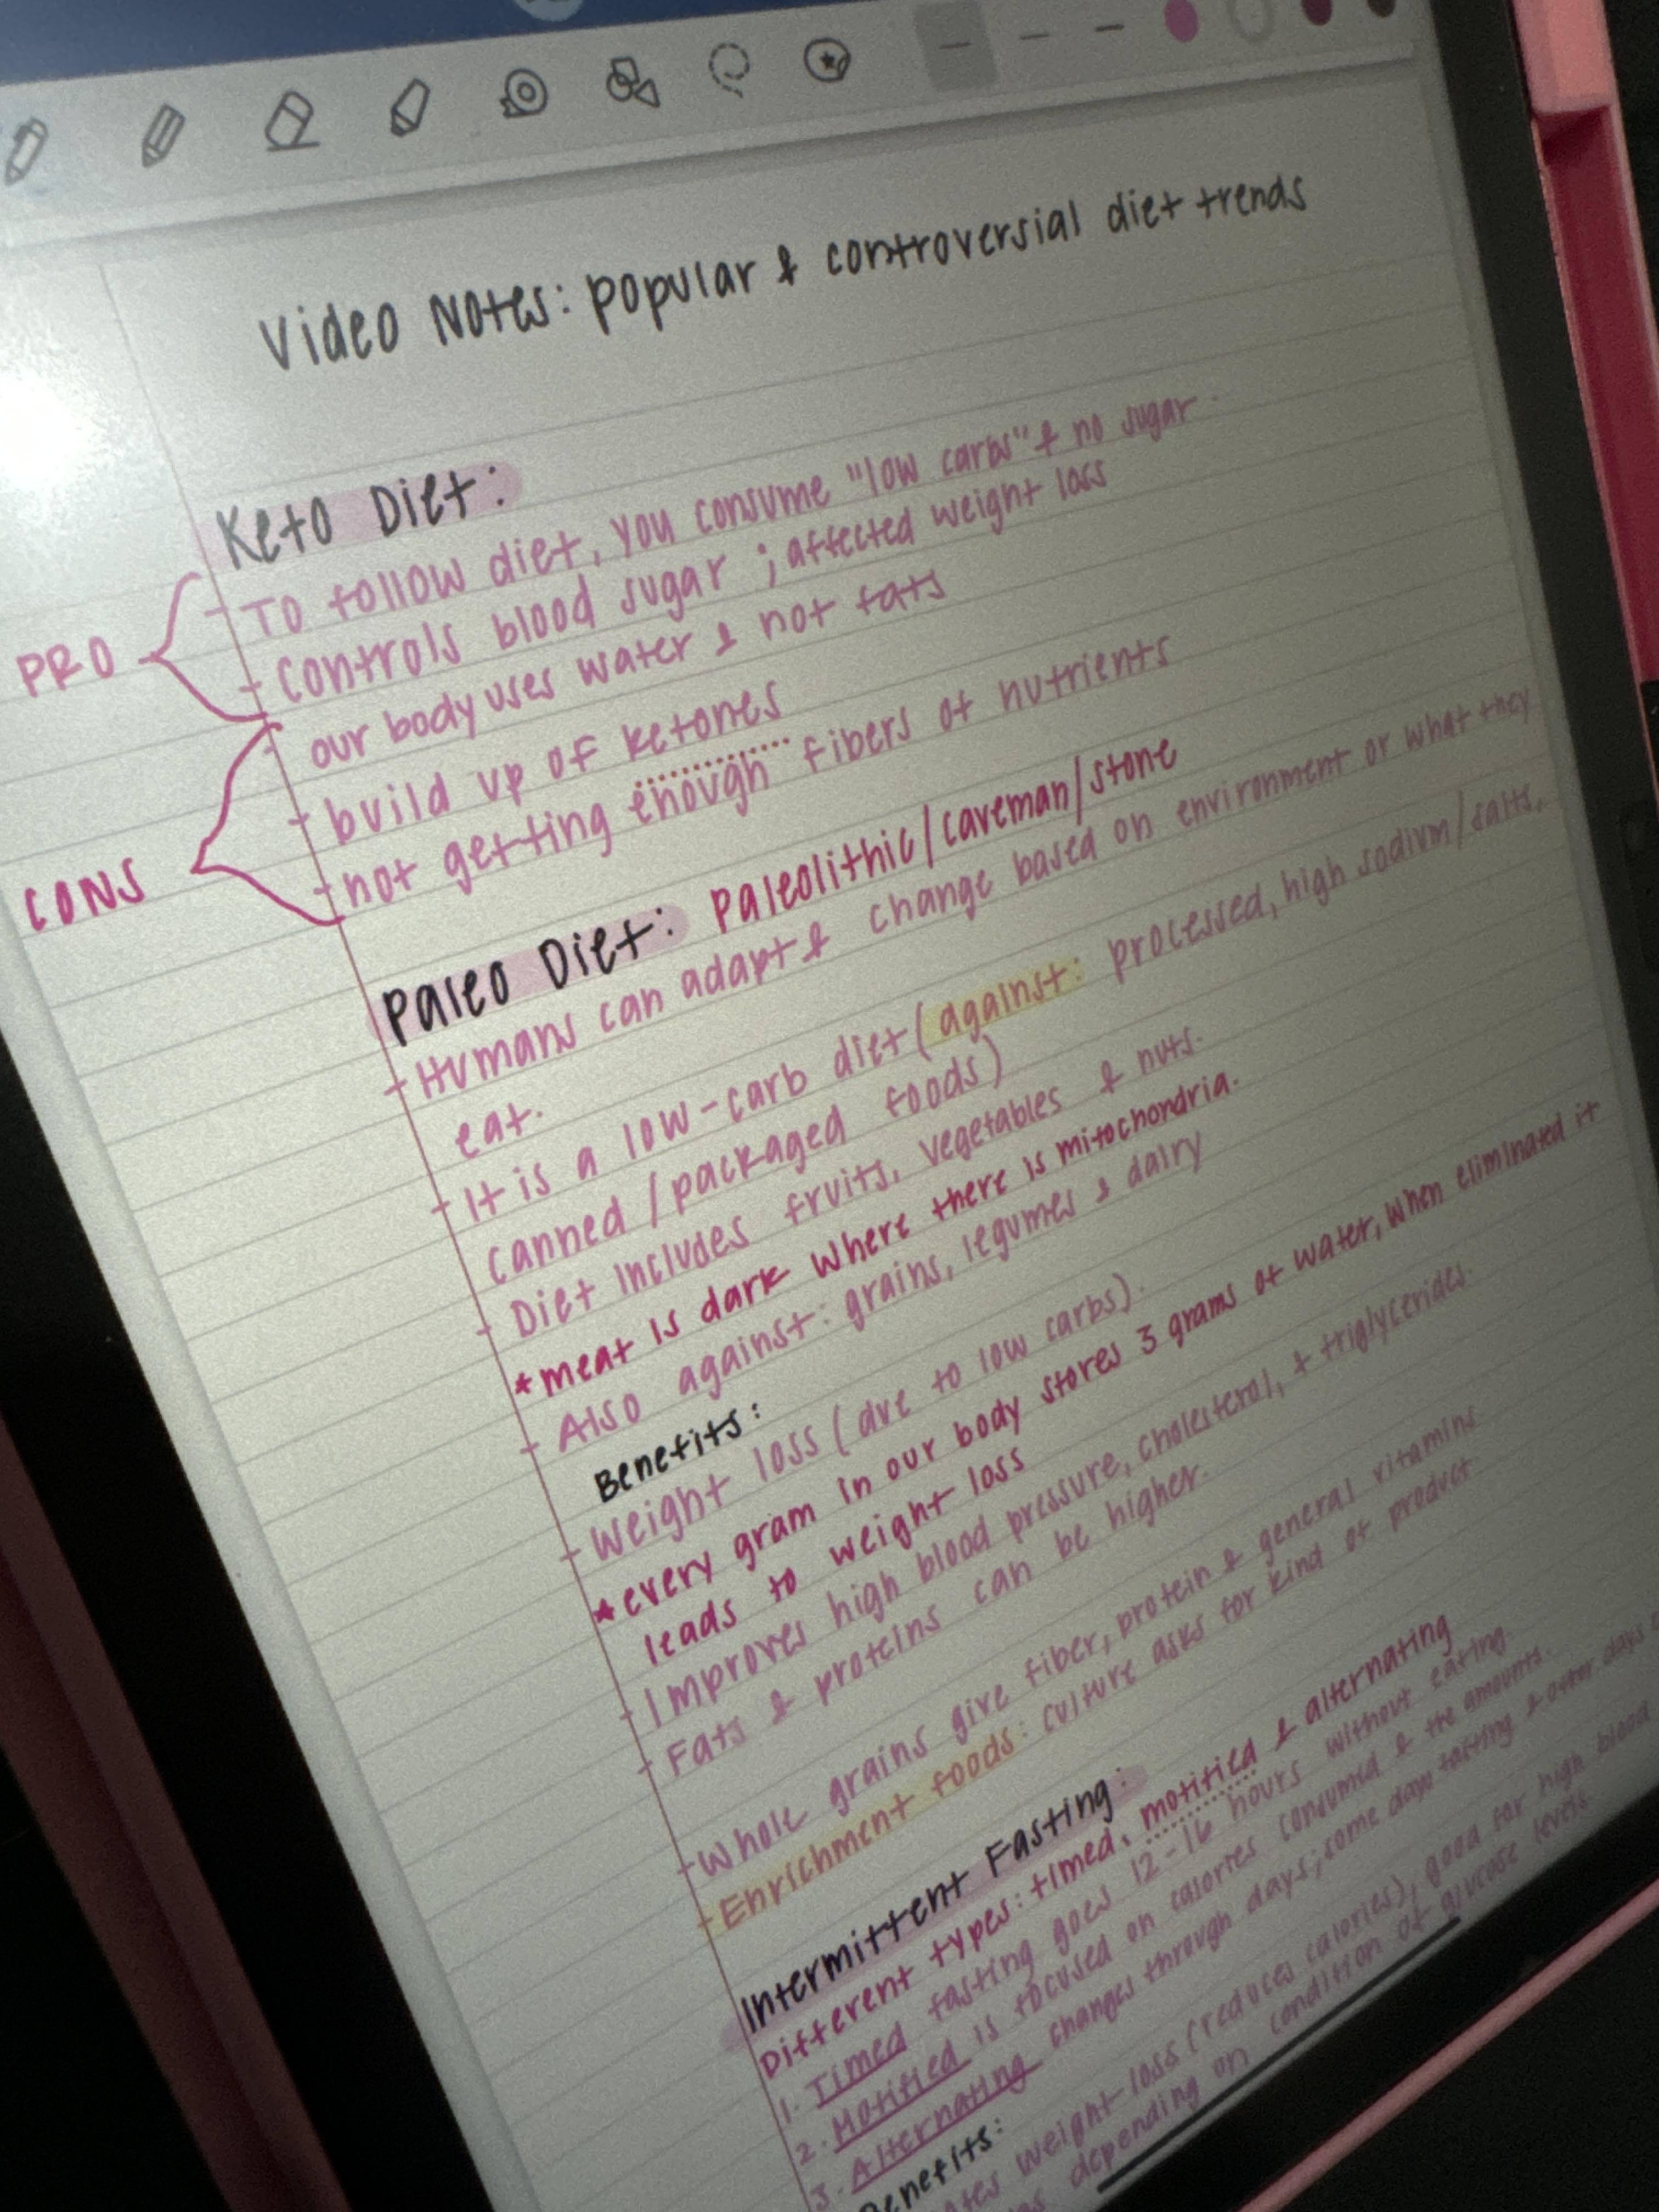 Video Notes: popular & controversial diet trends
Keto Diet:
- To follow diet, you consume "low carbs" & no sugar.
PRO
- controls blood sugar ; affected weight loss
- our body uses water & not fats
- build up of ketones
CONS
- not getting enough fibers of nutrients
Paleo Diet: Paleolithic/caveman/stone
- Humans can adapt & change based on environment or what they
eat.
- It is a low-carb diet (against: processed, high sodium/salts,
canned/packaged foods)
- Diet includes fruits, vegetables & nuts.
* meat is dark where there is mitochondria.
- Also against: grains, legumes & dairy
Benefits:
- Weight loss (due to low carbs).
* every gram in our body stores 3 grams of water, when eliminated it
leads to weight loss
- Improves high blood pressure, cholesteral, & triglycerides.
- Fats & proteins can be higher.
- Whole grains give fiber, protein & general vitamins
- Enrichment foods: culture asks for kind of product
Intermittent Fasting:
Different types: timed, motified & alternating
1. Timed fasting goes 12-16 hours without eating.
2. Motified is focused on calories consumed & the amounts.
3. Alternating changes through days; some days fasting & other days
Benefits:
weight-loss (reduces calories), good for high blood
depending on condition of glucose levels